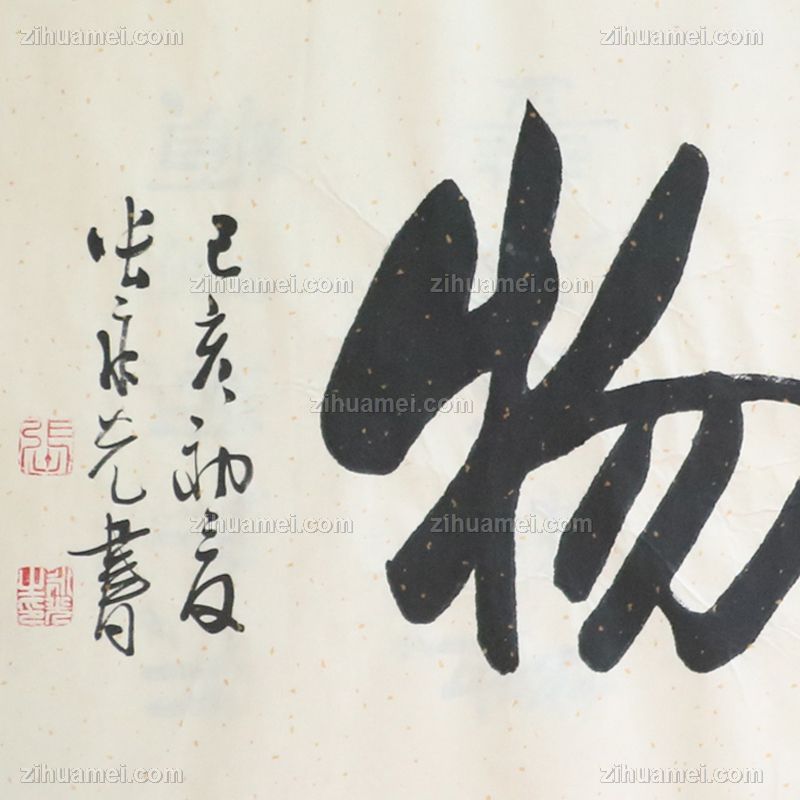 zihuamei.com
zihuamei.com
zihuamei.com
物
己亥初夏
张永光書
張
zihuamei.com
zihuamei.com
zihuamei.com
zihuamei.com
zihuamei.com
zihuamei.com
zihuamei.com
zihuamei.com